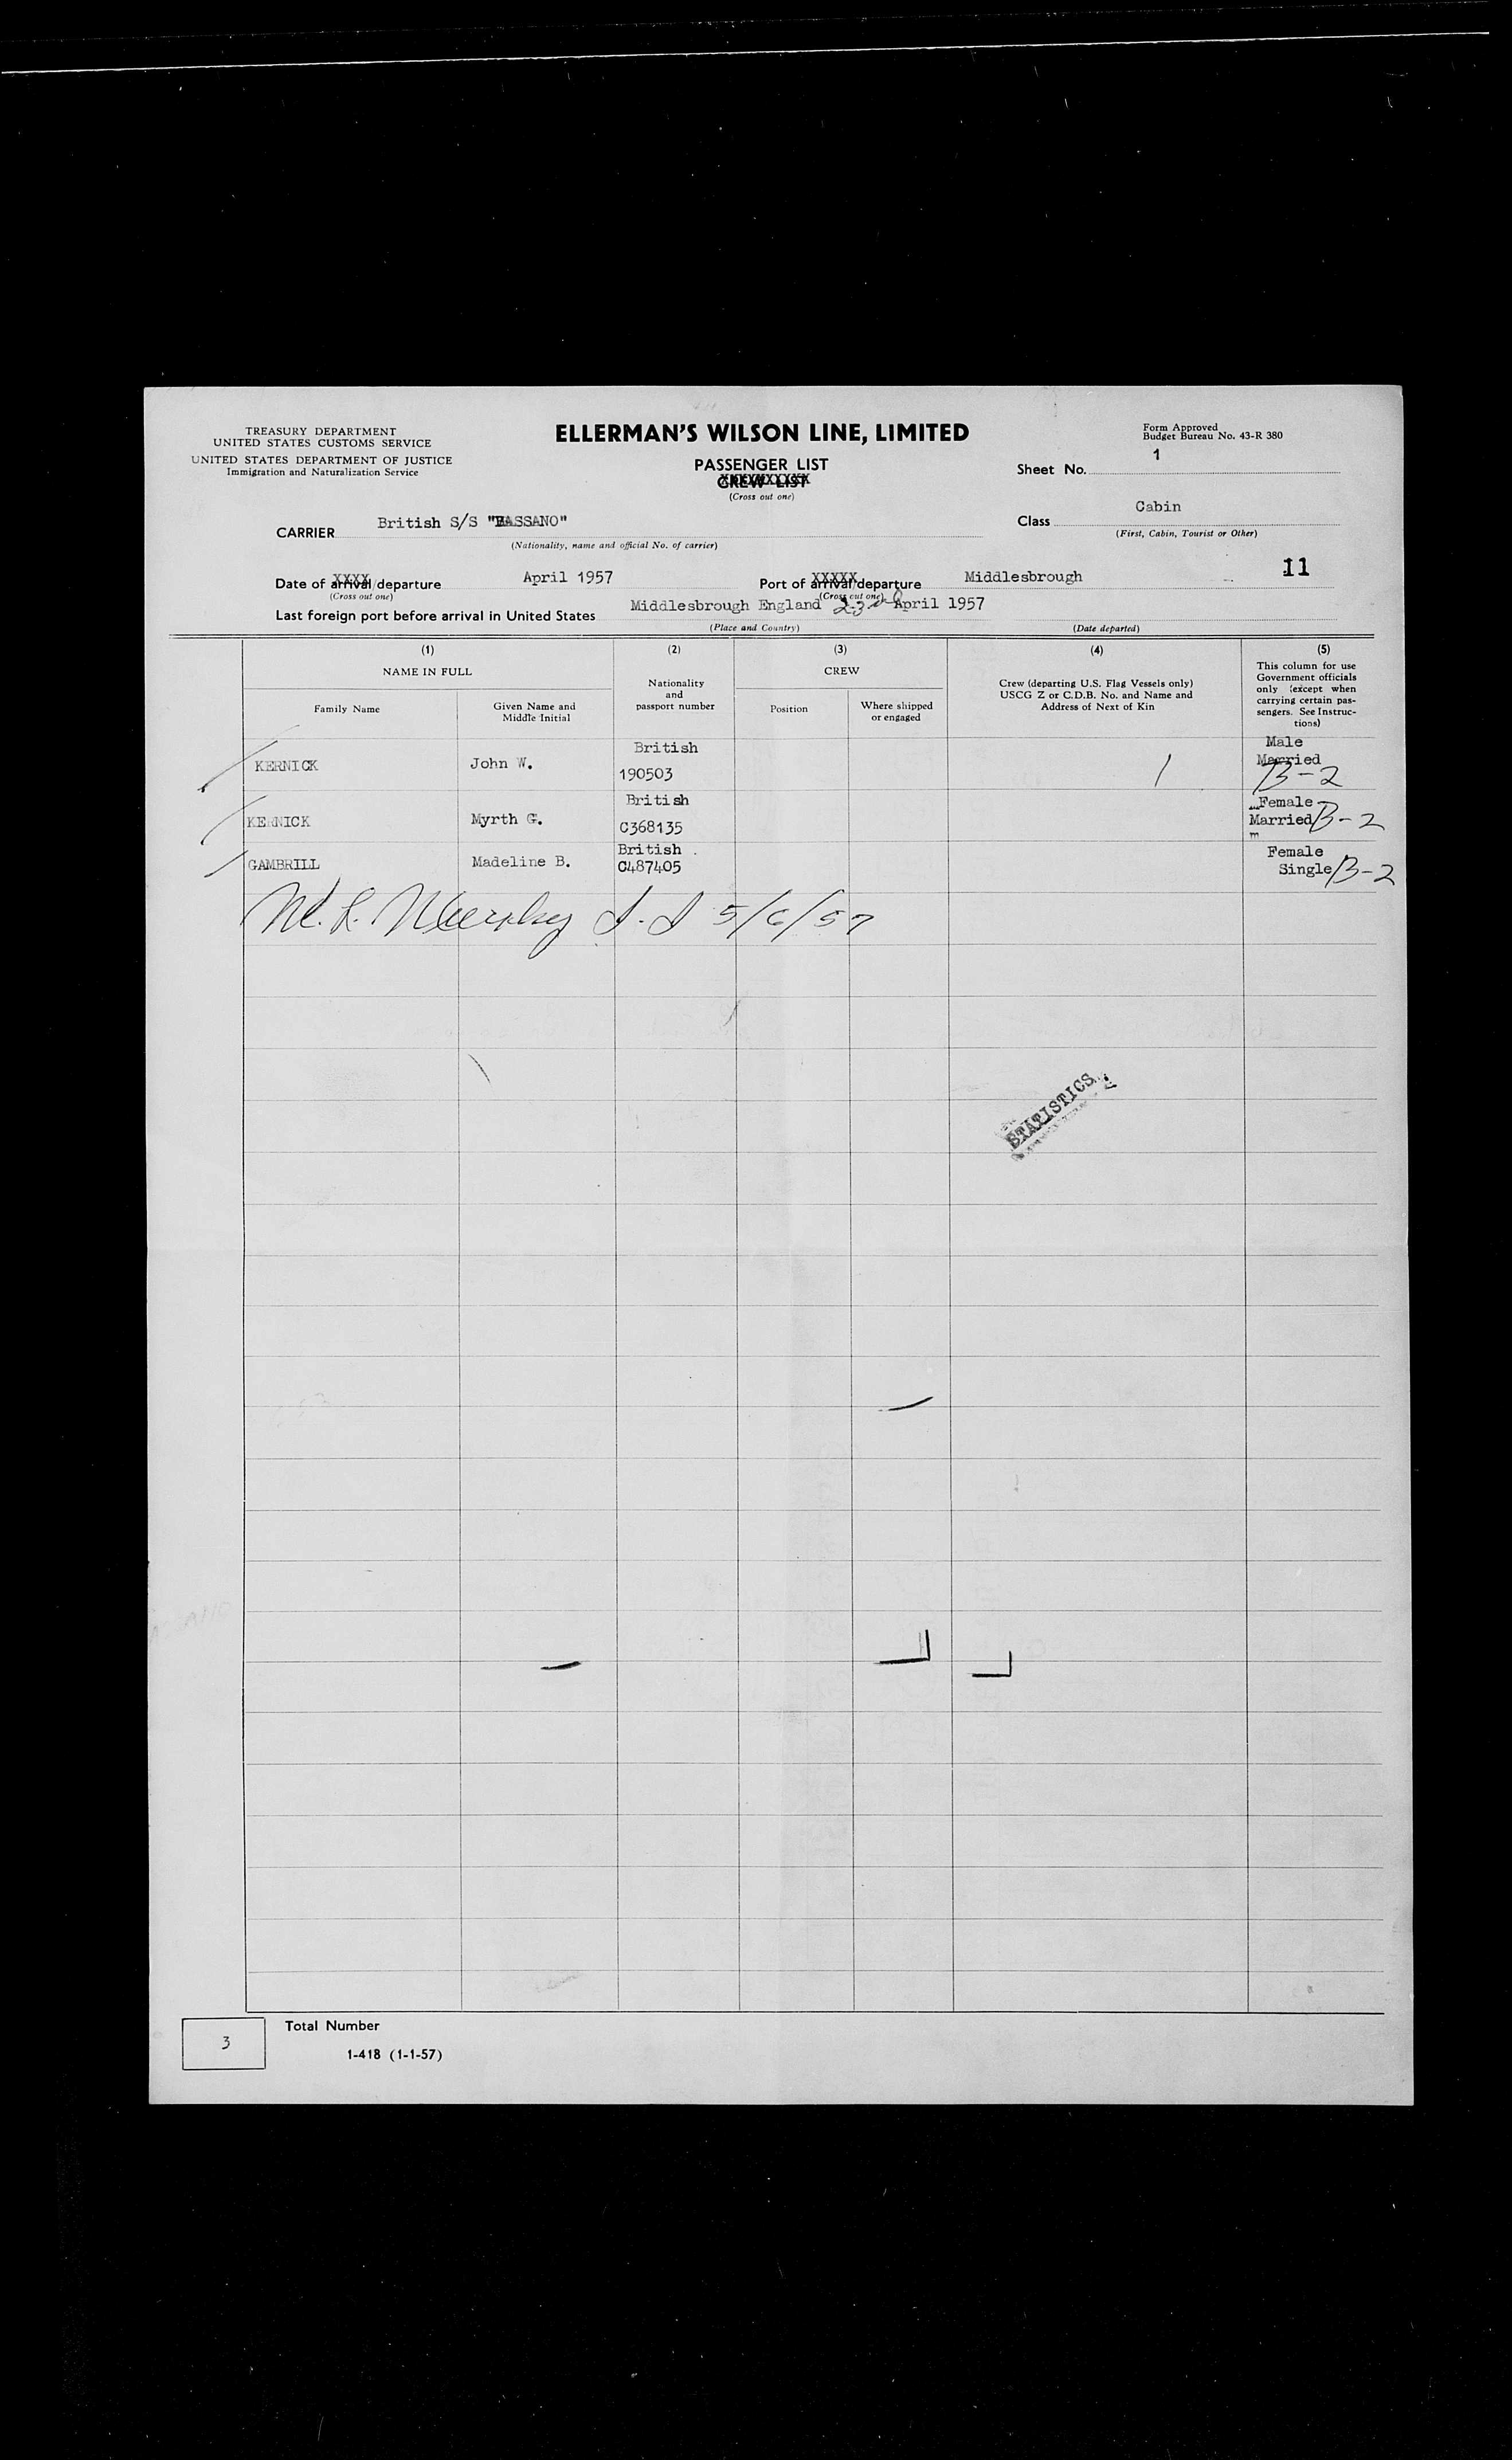 TREASURY DEPARTMENT
UNITED STATES CUSTOMS SERVICE
UNITED STATES DEPARTMENT OF JUSTICE
Immigration and Naturalization Service
ELLERMAN'S WILSON LINE, LIMITED
PASSENGER LIST
CREW LIST
(Cross out one)
Form Approved
Budget Bureau No. 43-R 380
Sheet No. 1
CARRIER British S/S "BASSANO"
(Nationality, name and official No. of carrier)
Class Cabin
(First, Cabin, Tourist or Other)
Date of arrival/departure April 1957
(Cross out one)
Port of arrival/departure Middlesbrough 11
(Cross out one)
Last foreign port before arrival in United States Middlesbrough England 23rd April 1957
(Place and Country) (Date departed)
(1) (2) (3) (4) (5)
NAME IN FULL
Family Name
Given Name and
Middle Initial
Nationality
and
passport number
CREW
Position
Where shipped
or engaged
Crew (departing U.S. Flag Vessels only)
USCG Z or C.D.B. No. and Name and
Address of Next of Kin
This column for use
Government officials
only (except when
carrying certain pas-
sengers. See Instruc-
tions)
KERNICK John W. British 190503 1 Male Married B-2
KERNICK Myrth G. British C368135 Female Married B-2
m
GAMBRILL Madeline B. British C487405 Female Single B-2
Murphy 5/6/57
STATISTICS
3
Total Number
1-418 (1-1-57)